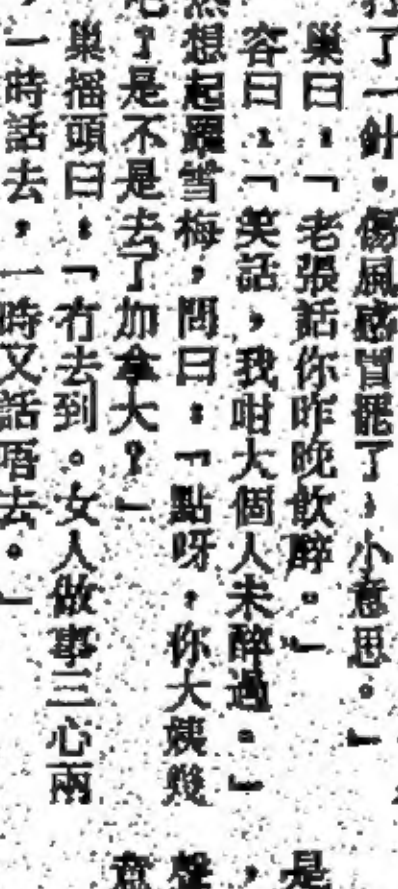 了一針。傷風感冒罷了，小意思。」
巢曰：「老張話你昨晚飲醉。」
容曰：「笑話，我咁大個人未醉過。」
然想起羅雪梅，問曰：「點呀，你大姨幾
了是不是去了加拿大？」
巢搖頭曰：「冇去到。女人做事三心兩
一時話去，一時又話唔去。」
是
，
聲
意